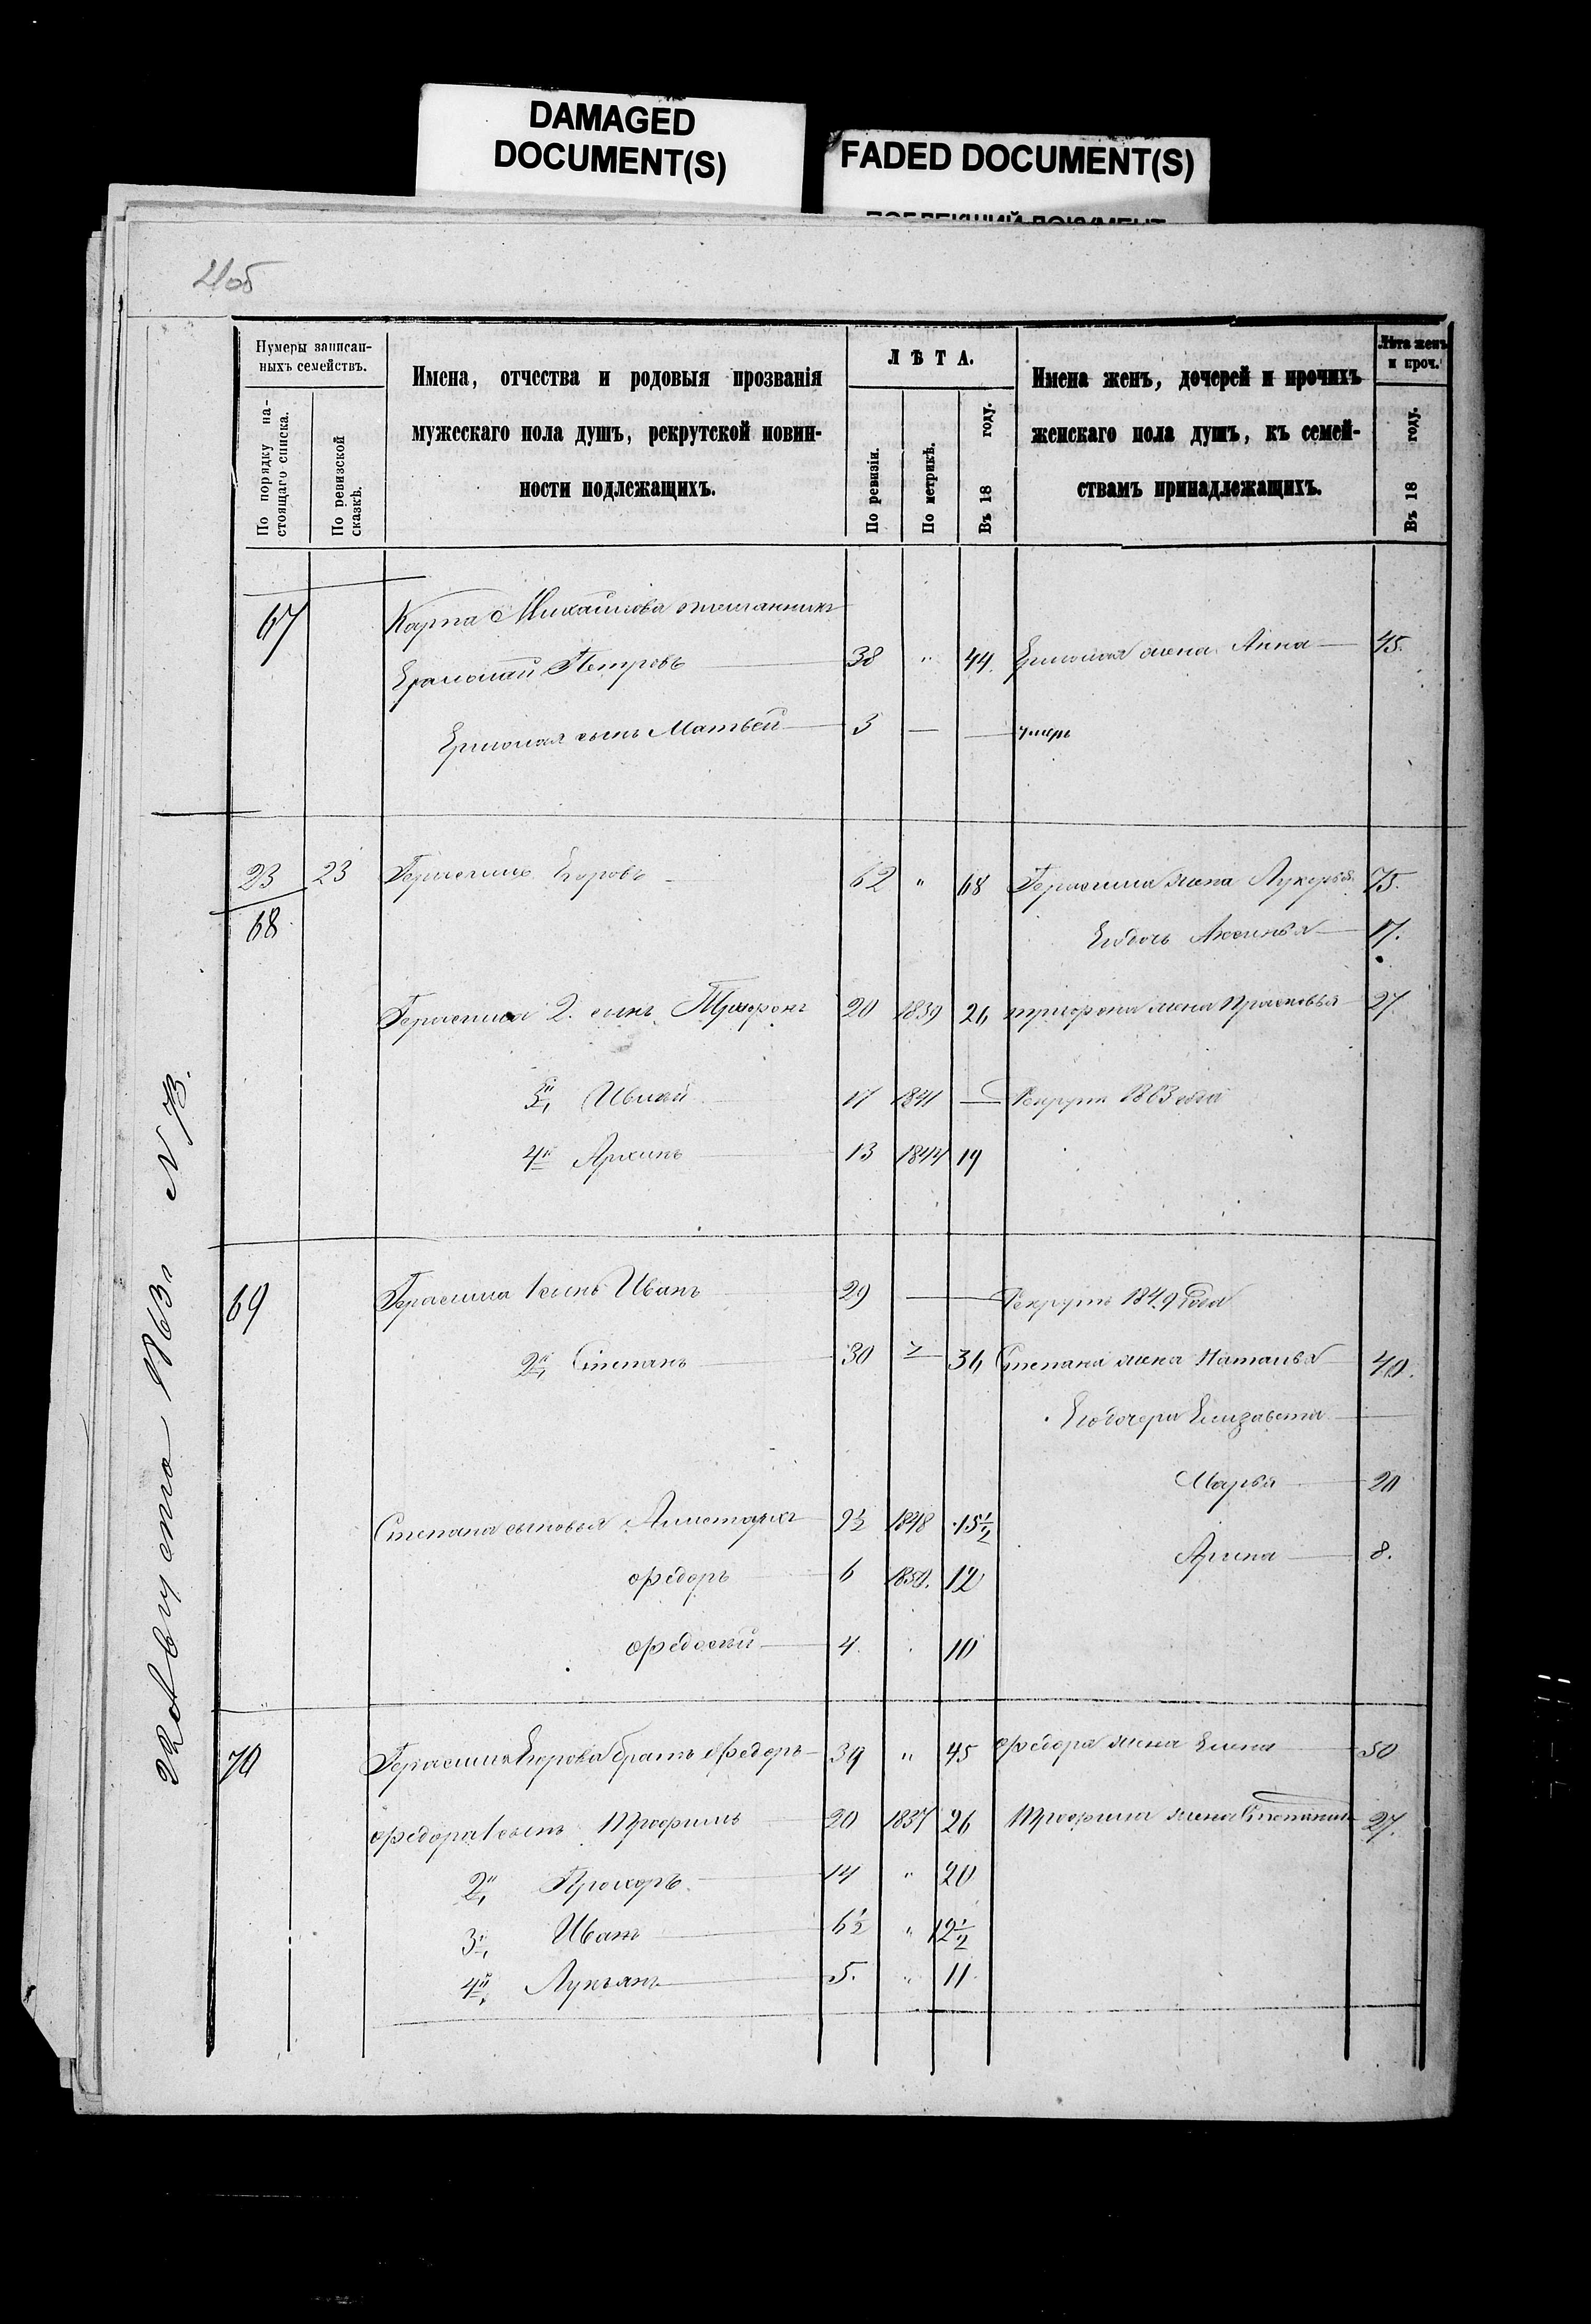 DAMAGED
DOCUMENT(S)
FADED DOCUMENT(S)
21об
Нумеры записан-
ныхъ семействъ.
По порядку на-
стоящаго списка.
По ревизской
сказкѣ.
Имена, отчества и родовыя прозванія
мужескаго пола душъ, рекрутской повин-
ности подлежащихъ.
ЛѢТА.
По ревизіи.
По метрикѣ.
Въ 18 году.
Имена женъ, дочерей и прочихъ
женскаго пола душъ, къ семей-
ствамъ принадлежащихъ.
Лѣта женъ
и проч.
Въ 18 году.
67 Карпа Михайлова племянникъ
Ермолай Петровъ 38 " 44. Ермолая жена Анна 45.
Ермолая сынъ Матвей 3 — — умеръ
23 23 Герасимъ Егоровъ 62 " 68 Герасима жена Лукерья 75.
68 Его дочь Аксинья 17.
Герасима 2. сынъ Трифонъ 20 1839 26 трифона жена Прасковья 27.
3й 17 1841 — Рекрутъ 1863 года
4й Архипъ 13 1844 19
69 Герасима 1 сынъ Иванъ 29 — — Рекрутъ 1849 года
2й Степанъ 30 36 Степана жена Наталья 40.
Его дочери Елизавета —
Марья 20
Степана сыновья Аристархъ 9½ 1848 15½
Арина 8.
Ѳедоръ 6 1850. 12
Ѳедосей 4 10
70 Герасима Егорова братъ Ѳедоръ 39 " 45 Ѳедора жена Елена 50
Ѳедора 1 сынъ Трофимъ 20 1837 26 Трофима жена Степанида 27.
2й Прохоръ 14 " 20
3й Иванъ 6½ " 12½
4й Лукъянъ 5. " 11.
22 Августа 1863 г N 73.